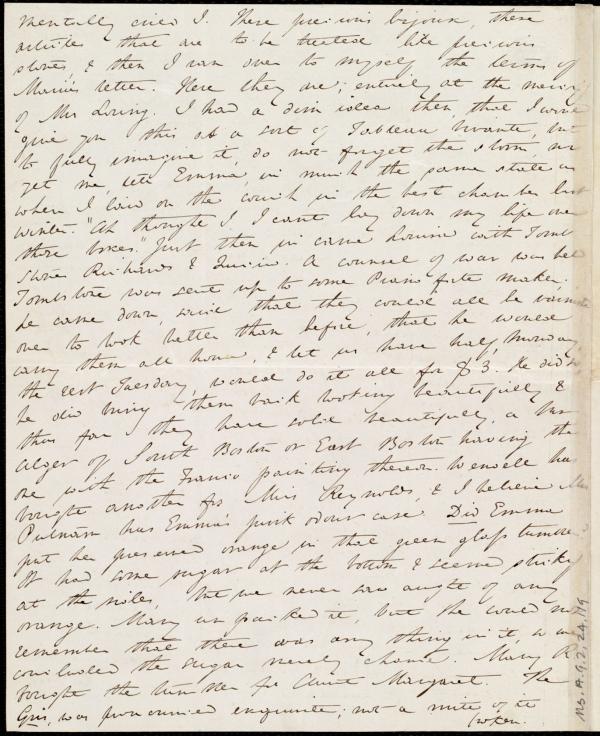 mentally cried I. These precious bijoux, these
articles that are to be treated like precious
stones, & then I ran over to myself the terms of
Maria's letter. Here they are; entirely at the mercy
of Mrs Loring. I had a dim idea then, that I would
give you this as a sort of Tableau vivante, but
to fully imagine it, do not forget the storm, nor
yet me, tete Emma, in much the same state as
when I laid on the couch in the best chamber last
winter. "Ah thought I, I can't lay down my life over
these boxes." Just then in came Louisa with Tomb
stone Richards & Quincy. A counsel of war was held
Tombstone was sent up to some Piano forte maker,
he came down, said that they could all be varnished
over to look better than before, that he would
carry them all home, & let us have half, Monday,
the rest Tuesday, would do it all for $3. He did so,
he did bring them back looking beautifully &
thus far they have sold beautifully, a Mrs
Alger of South Boston or East Boston having the
one with the Franco painting thereon. Wendell has
bought another for Miss Reynolds, & I believe Miss
Putnam has Emma's pink odour case. Did Emma
put her preserved orange in that green glass tumbler
It had some sugar at the bottom & seemed sticky
at the sides, but we never saw aught of any
orange. Mary unpacked it, but she could not
remember that there was any thing in it, so we
concluded the sugar merely chance. Mary R.
bought the tumbler for Aunt Margaret. The
Gris, was pronounced exquisite; not a mite of it
broken.
Ms. A. 9. 2. 24, 119